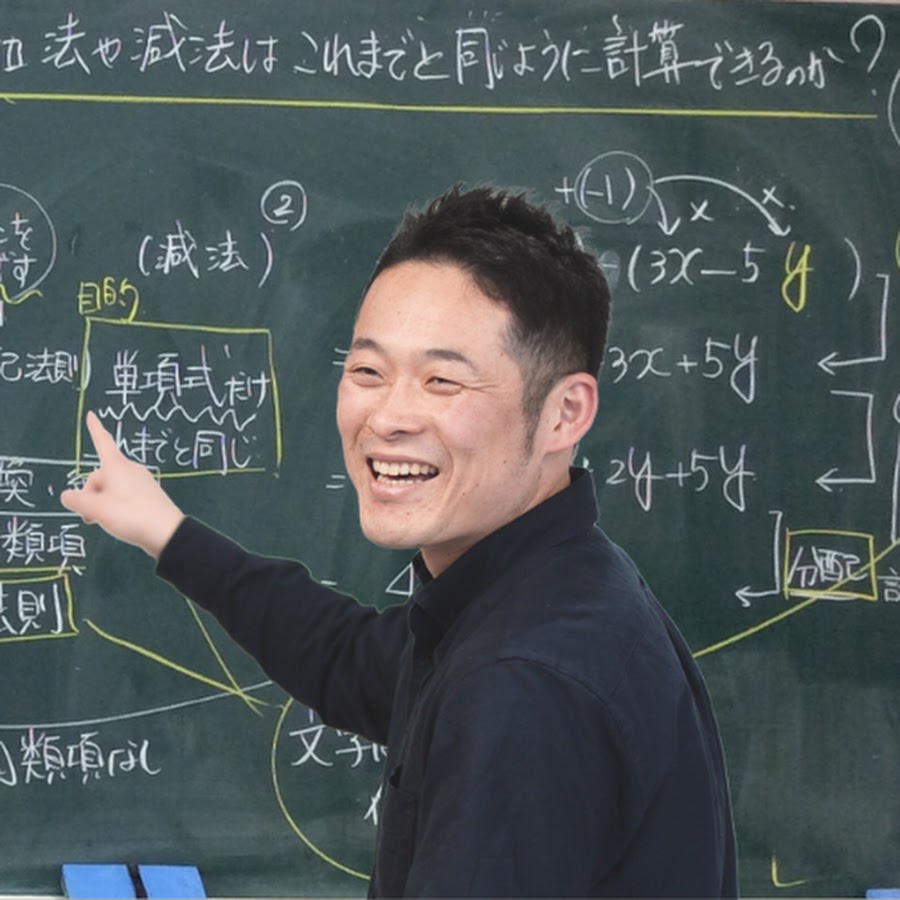 法や減法はこれまでと同じように計算できるのか?
②
(減法)
目的
単項式だけ
までと同じ
法則
類項
法則
類項なし
文字
+(-1)
× ×
-(3x-5y)
3x+5y
2y+5y
分配